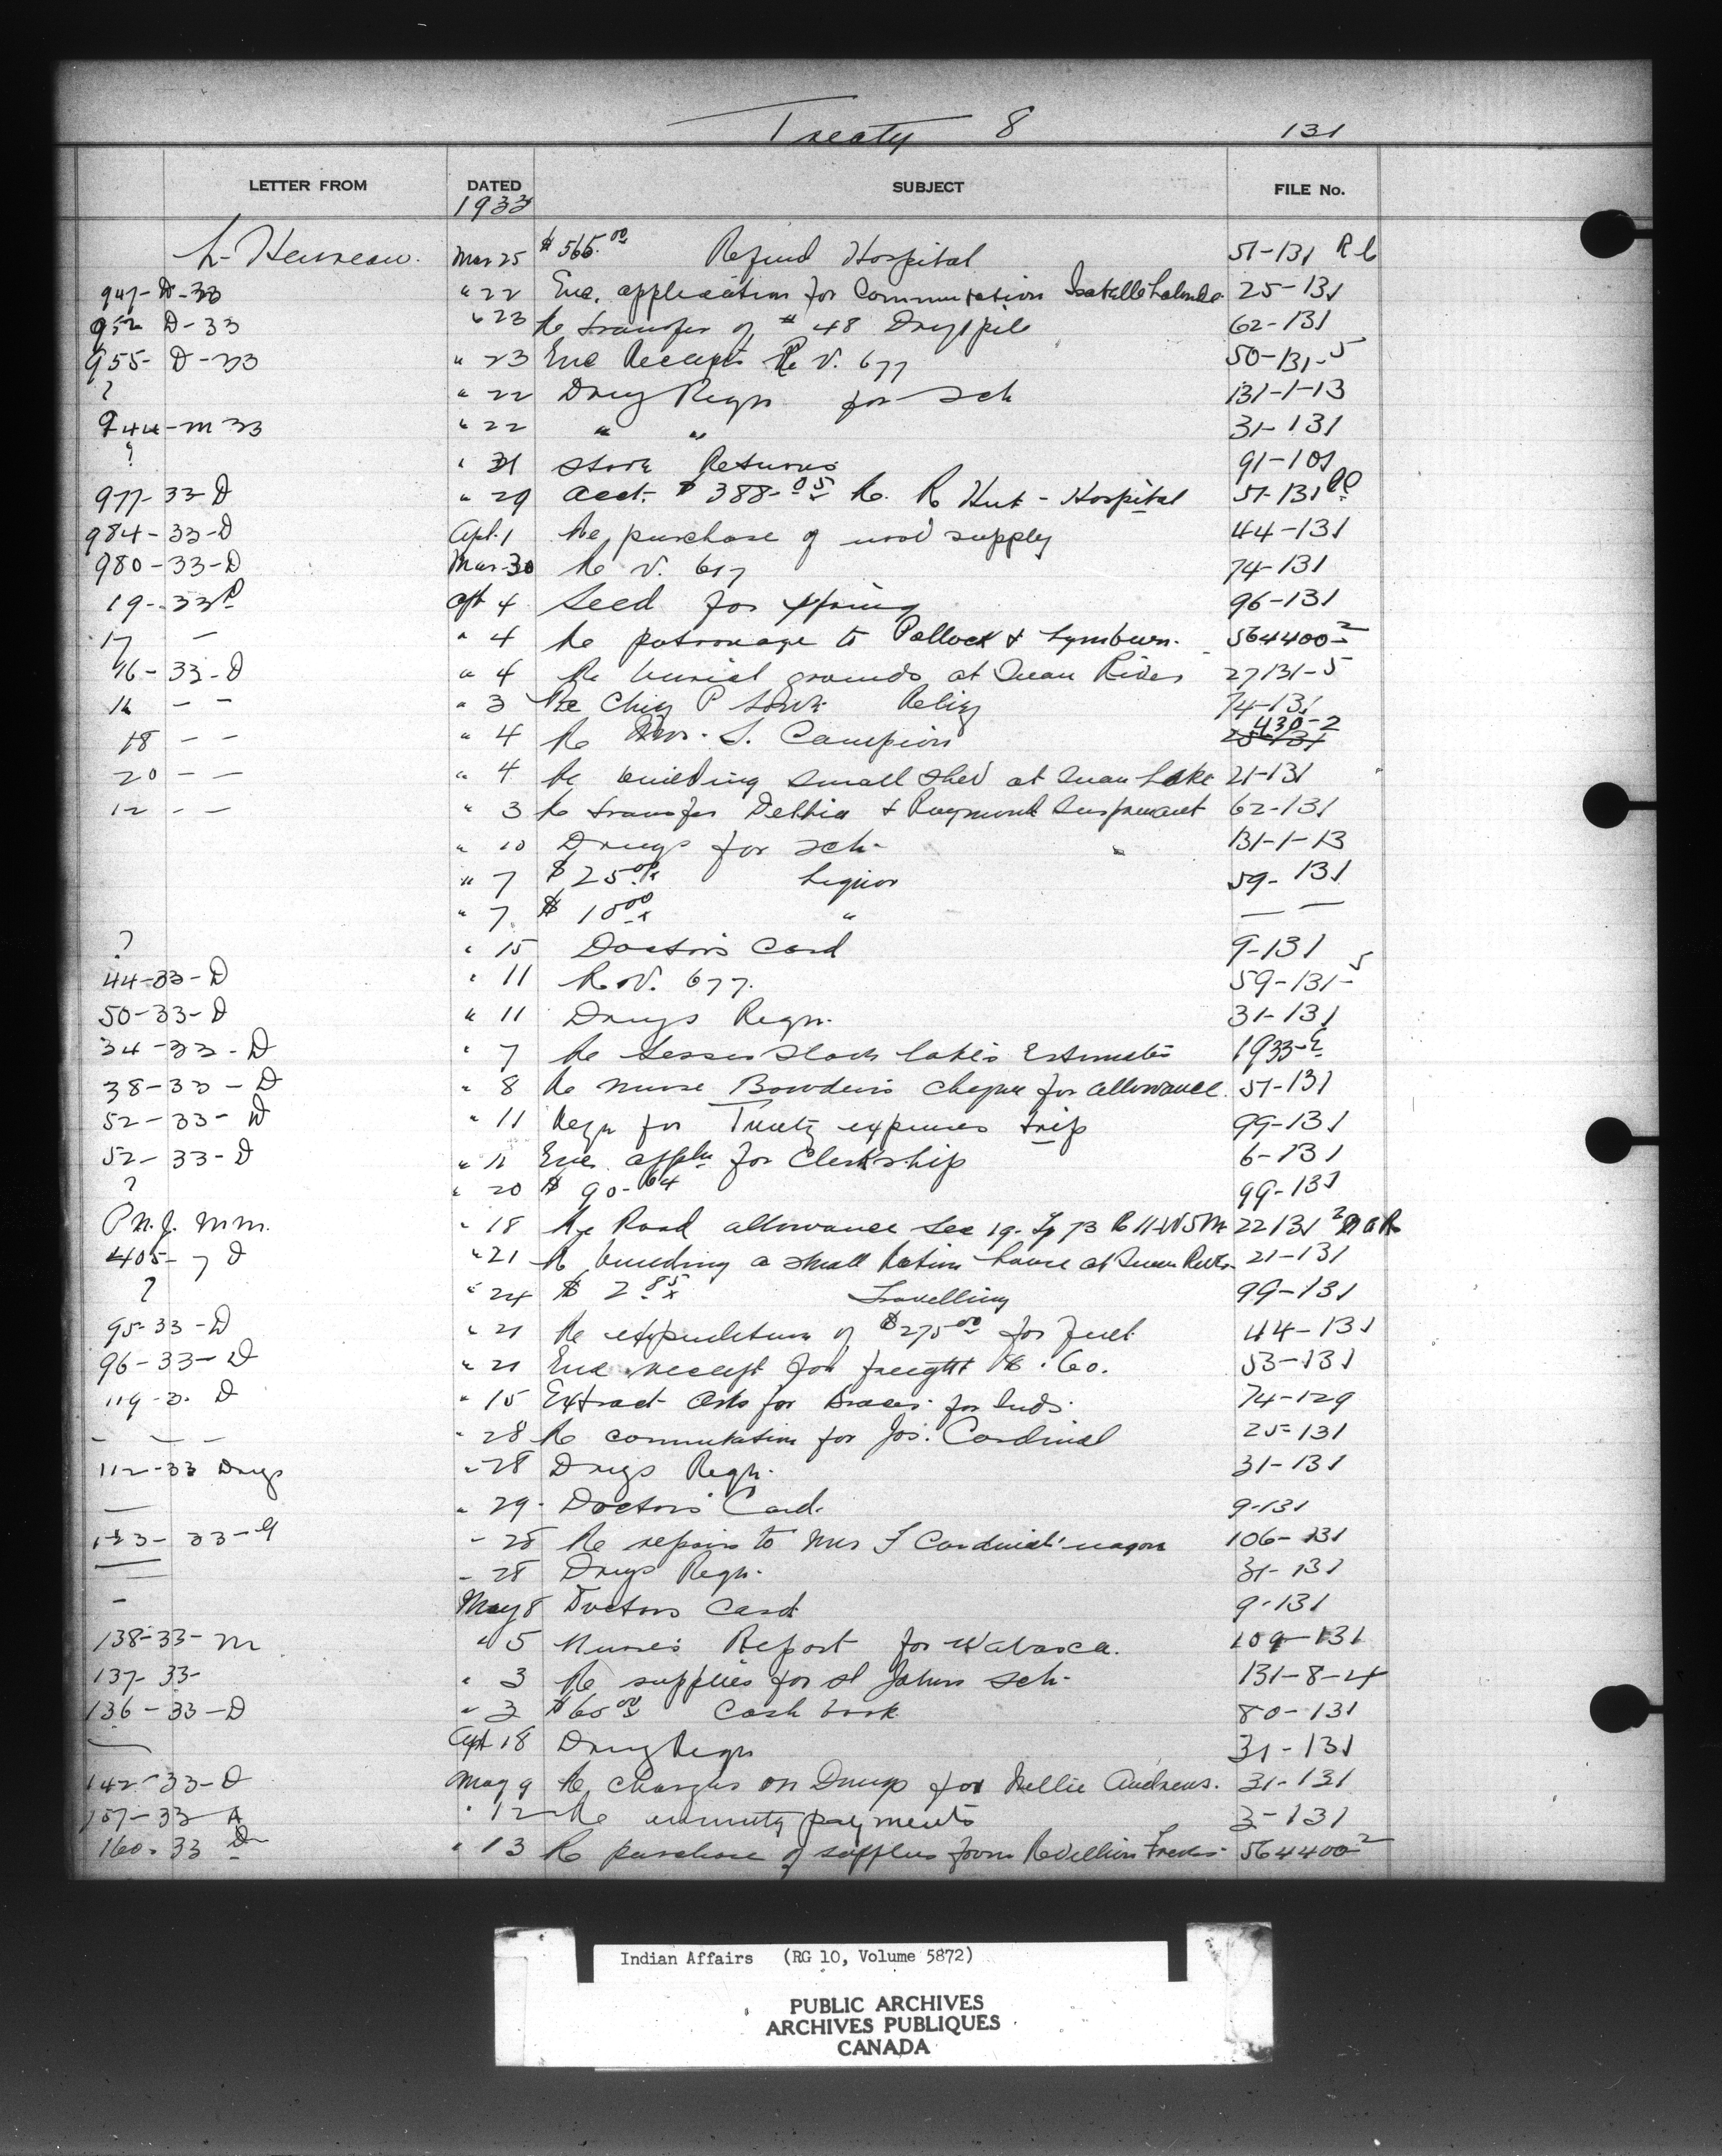 Treaty 8 131
LETTER FROM DATED SUBJECT FILE No.
1933
L. Heureau. Mar 25 $565.00 Refund Hospital 51-131 R C
947-D-33 " 22 Enc. application for Commutation Isabelle Lalonde 25-131
952 D-33 " 23 Re transfer of # 48 Driftpile 62-131
955- D-33 " 23 Enc Receipts Re V. 677 50-131-5
? " 22 Drug Reqn for Sch 131-1-13
944-M 33 " 22 " " 31-131
? " 31 Store Returns 91-101
977-33-D " 29 acct- $ 388-05 Re. R Hut - Hospital 51-131
984-33-D Apl. 1 Re purchase of wood supply 44-131
980-33-D Mar-30 Re V. 617 74-131
19-33 Apl 4 Seed for spring 96-131
17 - " 4 Re patronage to Pollock & Lymburn. 564400-2
16-33-D " 4 Re burial grounds at Swan River 27131-5
16 - - " 3 Re Chief P Relief 74-131
18 - - " 4 Re Mrs. S. Campion 430-2
20 - - " 4 Re building small shed at Swan Lake 21-131
12 - - " 3 Re transfer & Raymond 62-131
" 10 Drugs for sch- 131-1-13
" 7 $25.00 Liquor 59-131
" 7 $10.00 " — —
? " 15 Doctors Card 9-131
44-33-D " 11 Re V. 677. 59-131-5
50-33-D " 11 Drugs Reqn. 31-131
34-33-D " 7 Re Lesser Slave Lake's Estimates 1933-E
38-33-D " 8 Re nurse Bowden's cheque for allowance. 51-131
52-33-D " 11 Reqn for Treaty expenses trip 99-131
52-33-D " 11 Enc. appln for Clerkship 6-131
? " 20 $ 90-64 99-131
P.N.J. Mm. " 18 Re Road allowance Sec 19- Tp 73 R 11-W5M 22131-2
405-7 D " 21 Re building a small Ration house at Swan River 21-131
? " 24 $ 2.85 Travelling 99-131
95-33-D " 21 Re expenditure of $275.00 for fuel 44-131
96-33-D " 21 Enc receipt for freight .60. 53-131
119-3. D " 15 Extract Asks for for Inds. 74-129
- - - " 28 Re commutation for Jos. Cardinal 25-131
112-33 Drugs " 28 Drugs Reqn. 31-131
— " 29 Doctors' Card. 9-131
123-33-G " 28 Re repairs to Mrs F Cardinal's wagon 106-131
— " 28 Drugs Reqn. 31-131
- May 8 Doctors Card 9-131
138-33-M " 5 Nurse's Report for Wabasca. 109-131
137-33- " 3 Re supplies for St Johns sch- 131-8-4
136-33-D " 3 $60.00 Cash book 80-131
— Apl 18 Drug Reqn 31-131
142-33-D May 9 Re Charges on Drugs for Nellie Andrews. 31-131
157-33-A " 12 Re annuity payments 3-131
160-33 D " 13 Re purchase of supplies from Revillion Freres- 564400-2
Indian Affairs (RG 10, Volume 5872)
PUBLIC ARCHIVES
ARCHIVES PUBLIQUES
CANADA